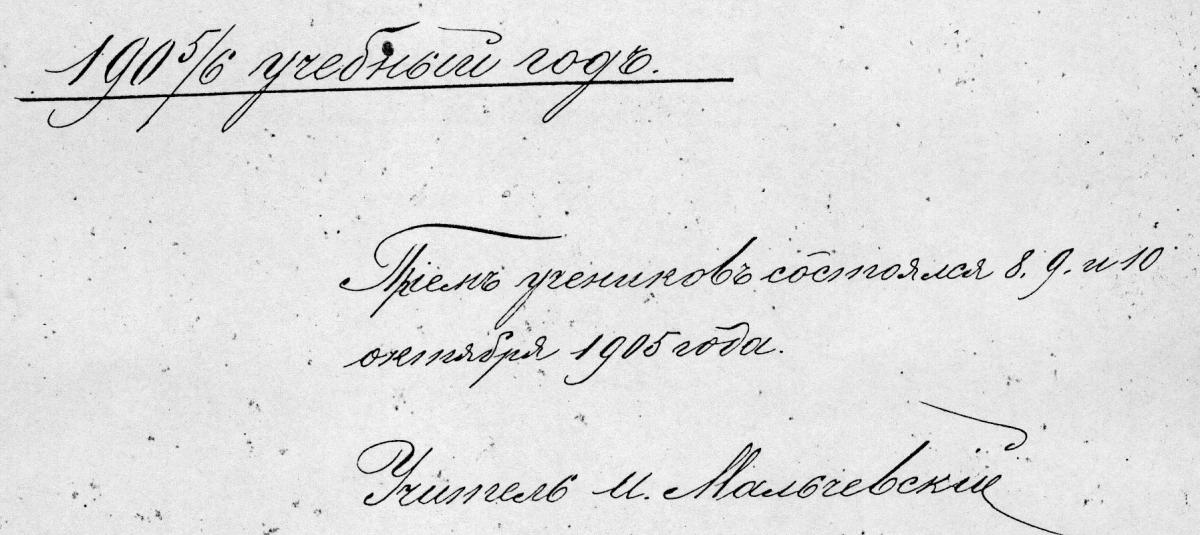 190 5/6 учебный годъ.
Пріемъ учениковъ состоялся 8. 9. и 10
октября 1905 года.
Учитель И. Мальчевскій